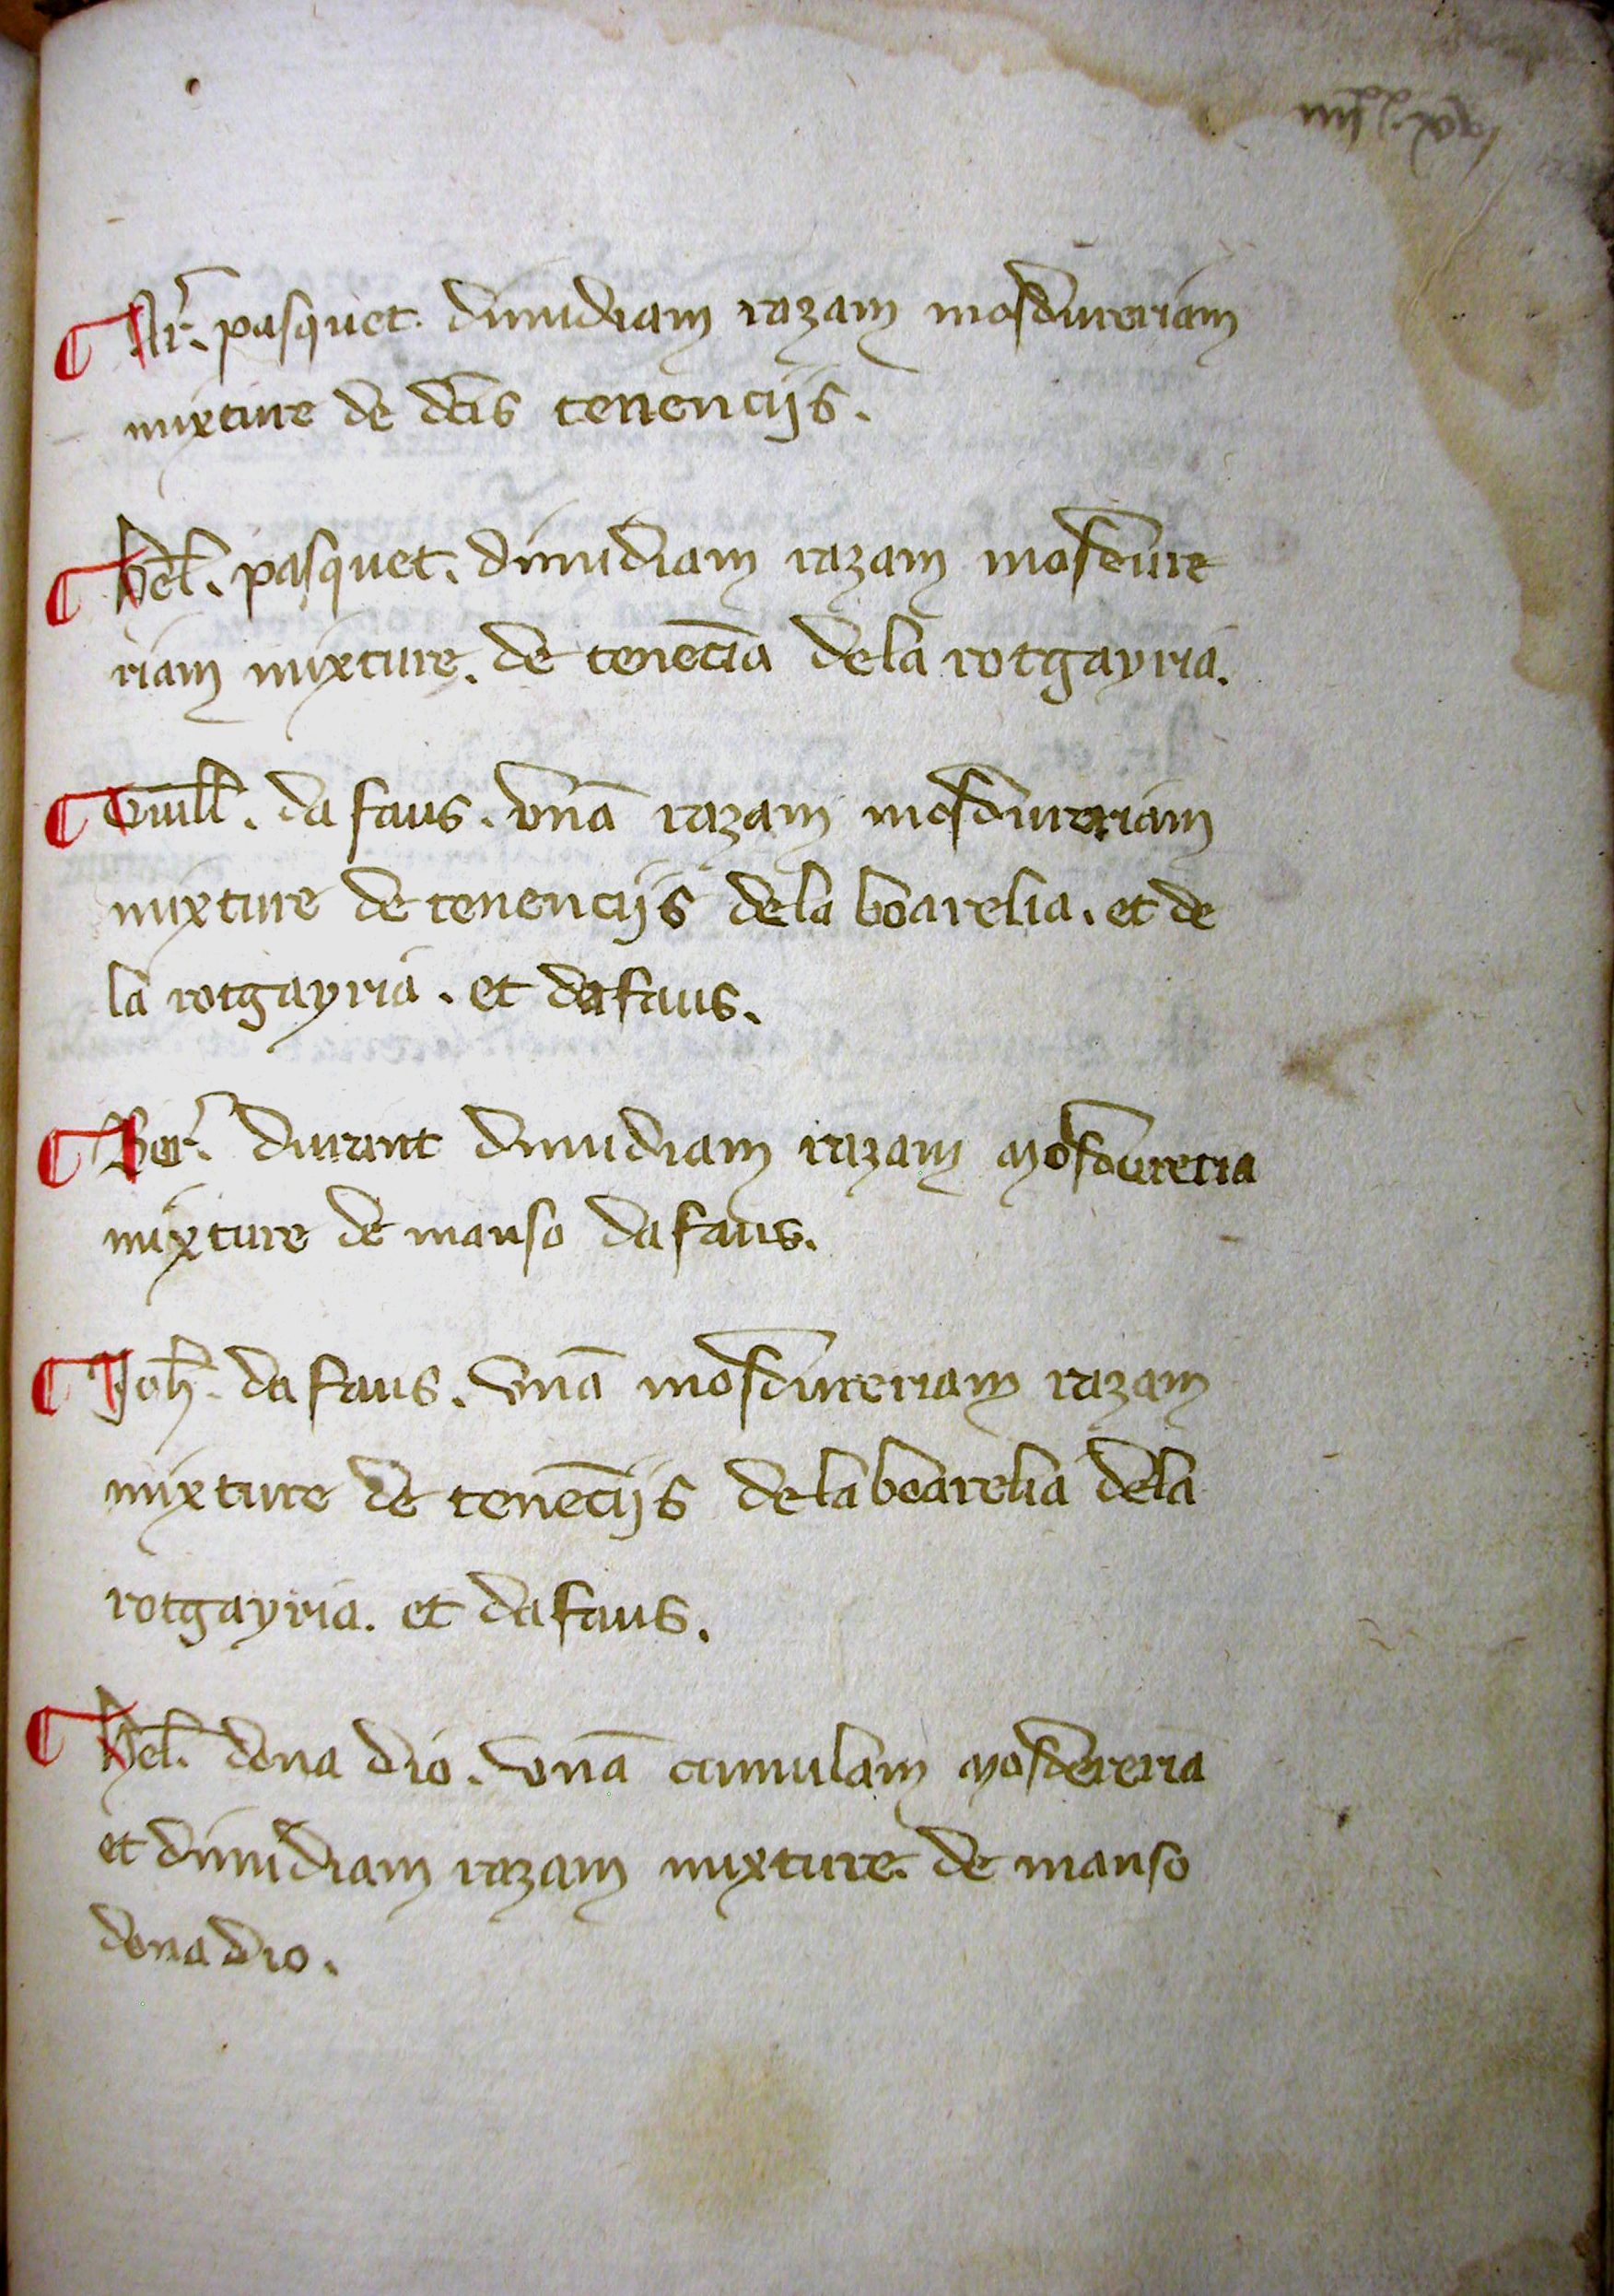 ¶ Ar. pasquet. dimidiam razam mosdureriam
mixture de dcis tenenciis.
¶ hel. pasquet. dimidiam razam mosdure
riam mixture. de tenēcia de la rotgayria.
¶ Guill. da faus. vnā razam mosdureriam
mixture de tenenciis de la boarelia. et de
la rotgayria. et da faus.
¶ Ber. durant dimidiam razam mosdureria
mixture de manso da faus.
¶ Joh. da faus. vnā mosdureriam razam
mixture de tenēciis de la boarelia de la
rotgayria. et da faus.
¶ hel. dona dio. vnā cumulam mosdereriā
et dimidiam razam mixture. de manso
dona dio.